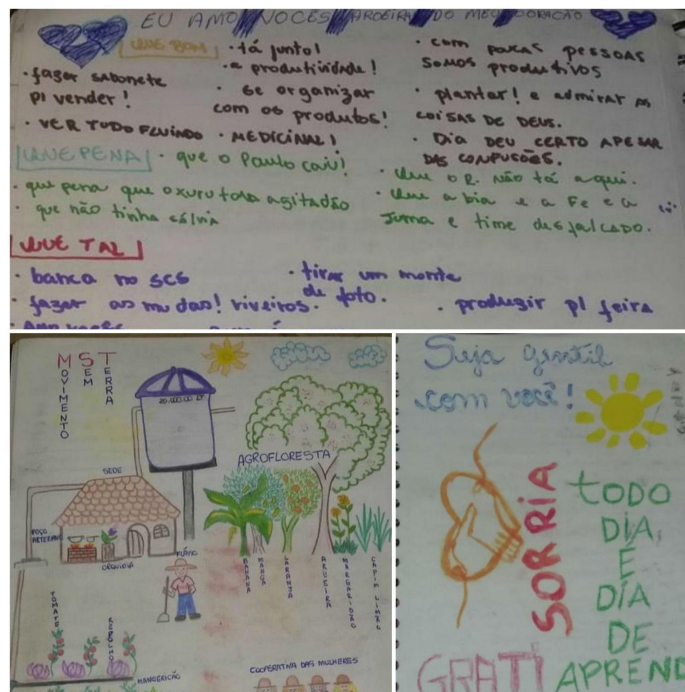 EU AMO VOCES AROEIRAS DO MEU CORAÇÃO
QUE BOM
• tá junto!
• a produtividade!
• fazer sabonete
p/ vender!
• se organizar
com os produtos!
• VER TUDO FLUINDO
• MEDICINAL!
• com poucas pessoas
somos produtivos
• plantar! e admirar as
coisas de Deus.
• Dia deu certo apesar
das confusões.
QUE PENA
• que o Paulo caiu!
• que pena que o xuru tava agitadão
• que não tinha sálvia
• Que o R. não tá aqui.
• Que a bia e a Fe e a
Juma e time desfalcado.
QUE TAL
• banca no scs
• fazer as mudas! viveiros.
• tirar um monte
de foto.
• produzir p/ feira
MST
MOVIMENTO
SEM
TERRA
20.000.00 LT
SEDE
POÇO
ARTESIANO
ORQUIDIA
AGROFLORESTA
BANANA
MANGA
LARANJA
ARUEIRA
MARGARIDÃO
CAPIM LIMÃO
TOMATE
REPOLHO
MANGERICÃO
COOPERATIVA DAS MULHERES
Seja gentil
com você!
SORRIA
TODO
DIA
É
DIA
DE
APREND
GRATI